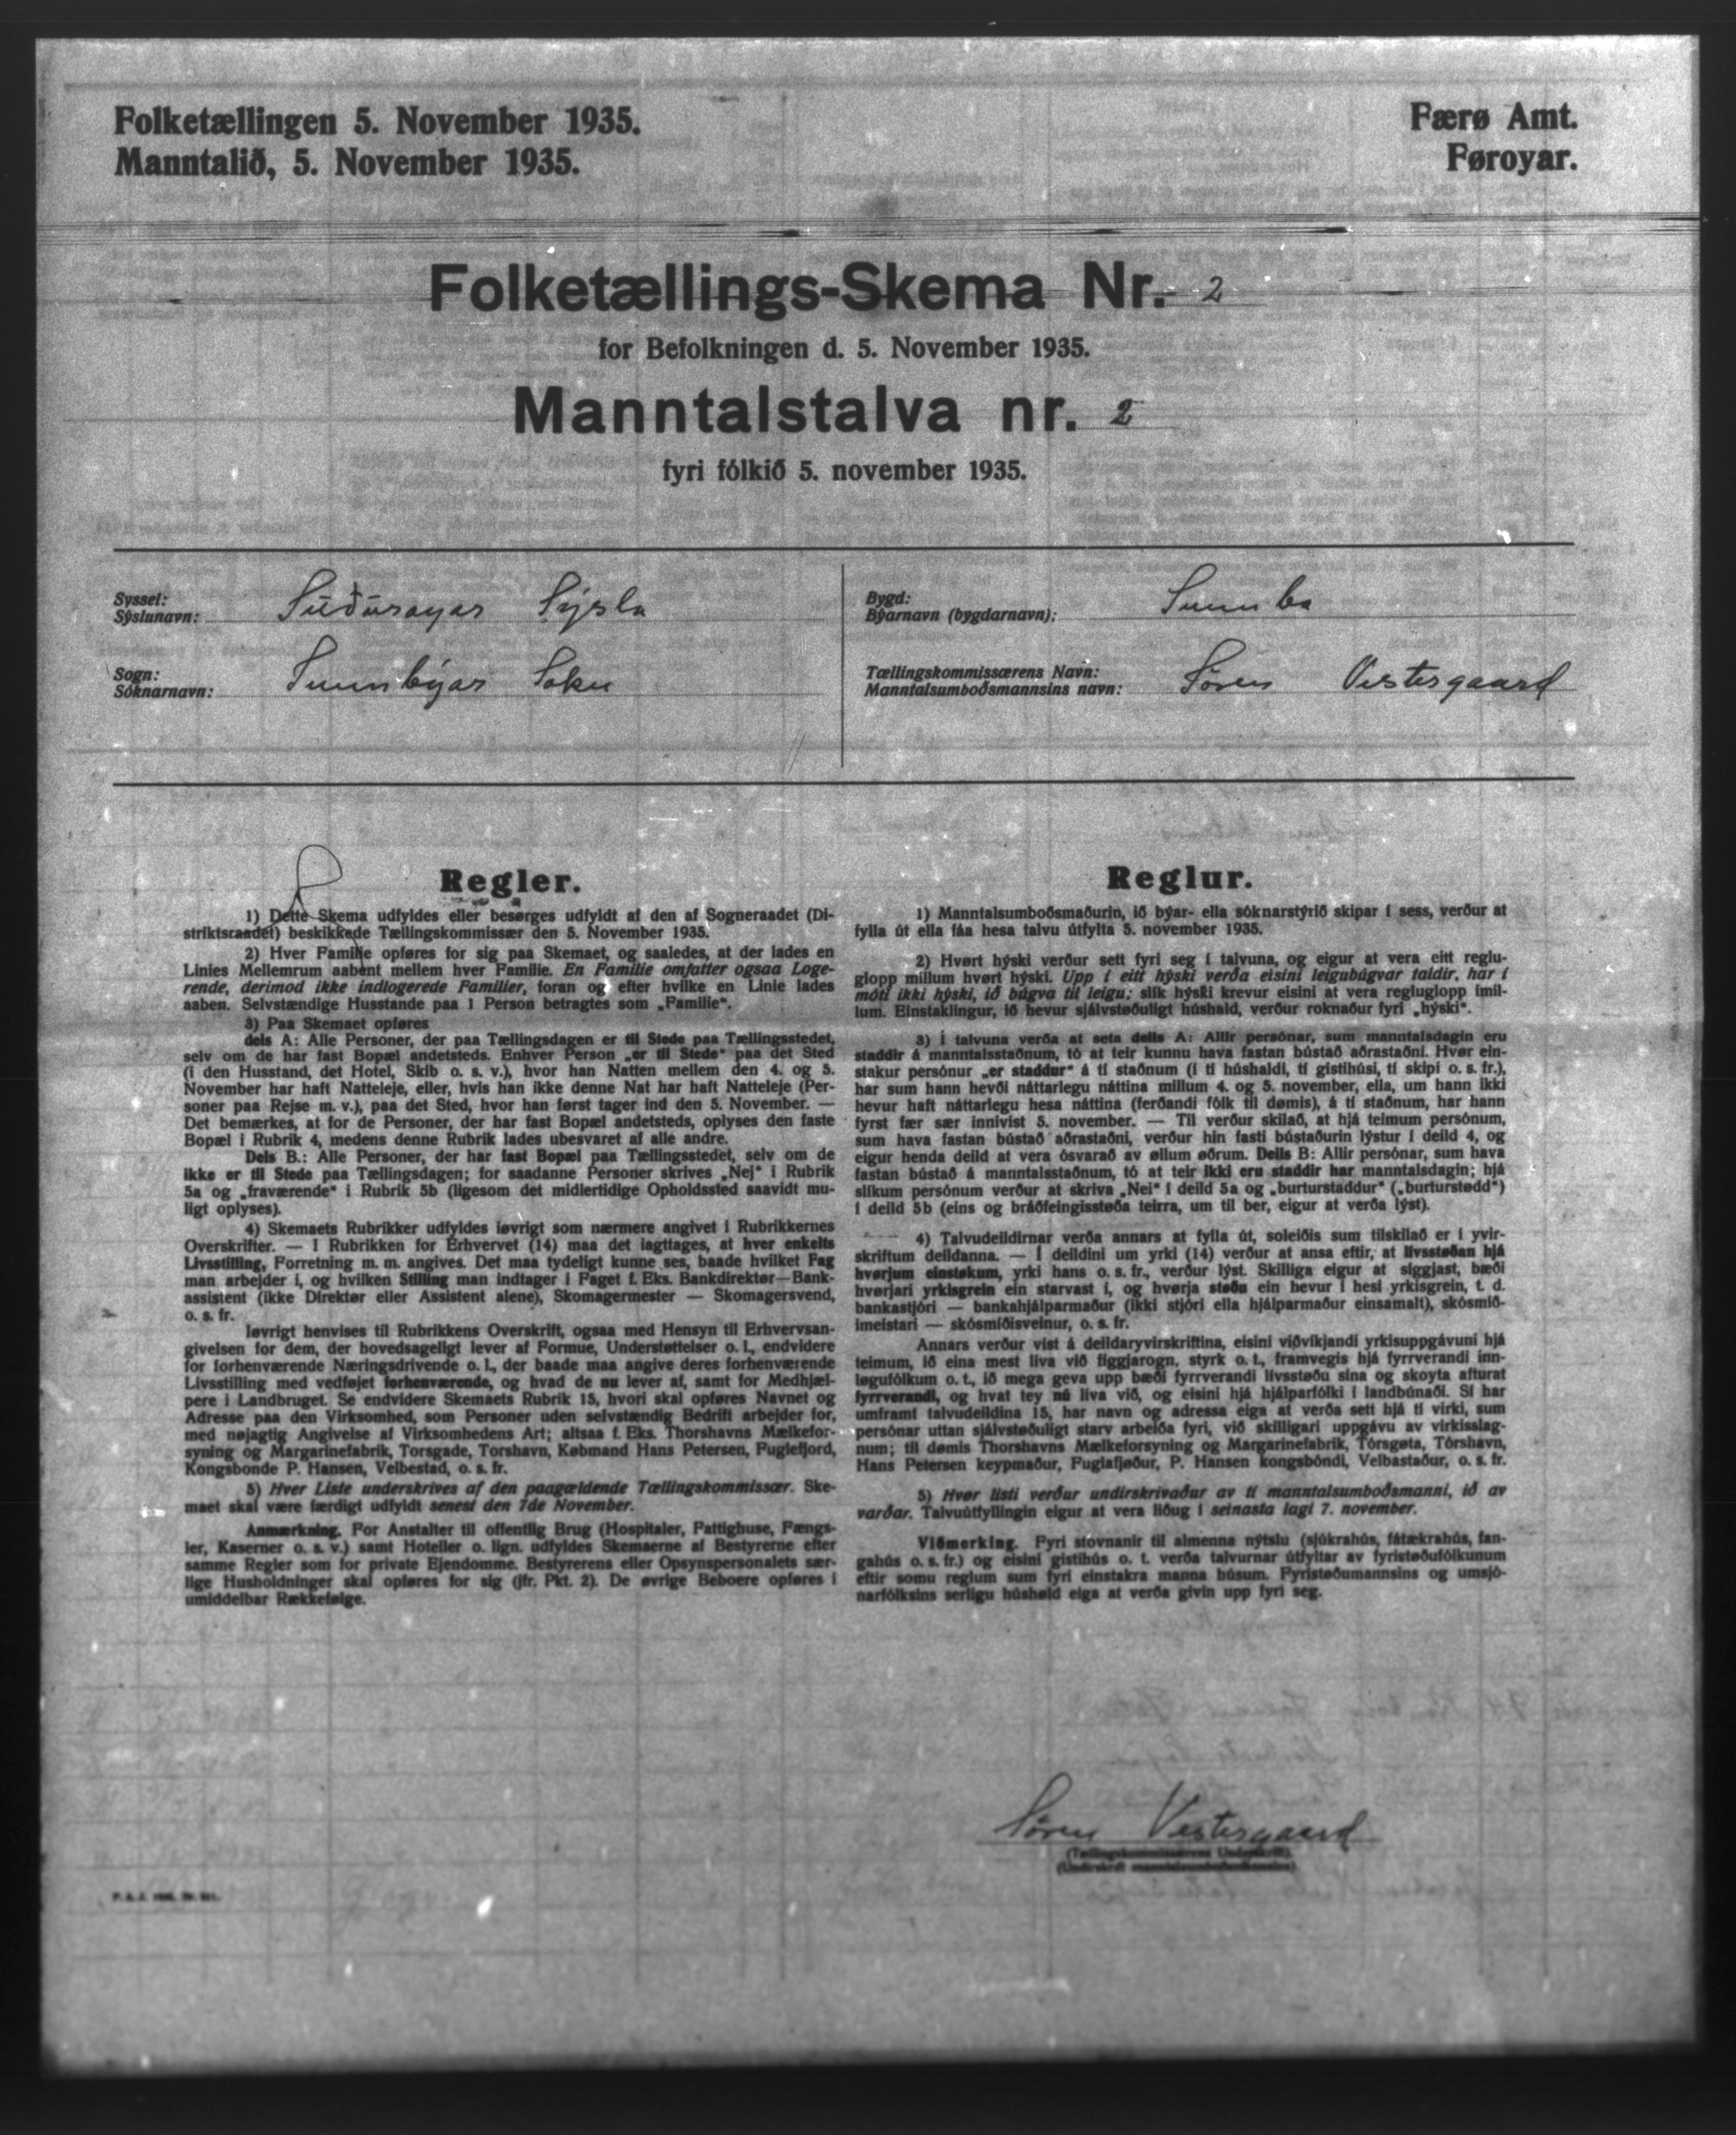 Folketællingen 5. November 1935.
Manntalið, 5. November 1935.
Færø Amt.
Føroyar.
Folketællings-Skema Nr. 2
for Befolkningen d. 5. November 1935.
Manntalstalva nr. 2
fyri fólkið 5. november 1935.
Syssel:
Sýslunavn: Súðuroyar Sýsla
Sogn:
Sóknarnavn: Sunnbýar Sokn
Bygd:
Býarnavn (bygdarnavn): Sunnba
Tællingskommissærens Navn:
Manntalsumboðsmannsins navn: Søren Vestergaard
Regler.
1) Dette Skema udfyldes eller besørges udfyldt af den af Sogneraadet (Di-
striktsraadet) beskikkede Tællingskommissær den 5. November 1935.
2) Hver Familje opføres for sig paa Skemaet, og saaledes, at der lades en
Linies Mellemrum aabent mellem hver Familie. En Familie omfatter ogsaa Loge-
rende, derimod ikke indlogerede Familier, foran og efter hvilke en Linie lades
aaben. Selvstændige Husstande paa 1 Person betragtes som „Familie“.
3) Paa Skemaet opføres
dels A: Alle Personer, der paa Tællingsdagen er til Stede paa Tællingsstedet,
selv om de har fast Bopæl andetsteds. Enhver Person „er til Stede“ paa det Sted
(i den Husstand, det Hotel, Skib o. s. v.), hvor han Natten mellem den 4. og 5.
November har haft Natteleje, eller, hvis han ikke denne Nat har haft Natteleje (Per-
soner paa Rejse m. v.), paa det Sted, hvor han først tager ind den 5. November. —
Det bemærkes, at for de Personer, der har fast Bopæl andetsteds, oplyses den faste
Bopæl i Rubrik 4, medens denne Rubrik lades ubesvaret af alle andre.
Dels B.: Alle Personer, der har fast Bopæl paa Tællingsstedet, selv om de
ikke er til Stede paa Tællingsdagen; for saadanne Personer skrives „Nej“ i Rubrik
5a og „fraværende“ i Rubrik 5b (ligesom det midlertidige Opholdssted saavidt mu-
ligt oplyses).
4) Skemaets Rubrikker udfyldes iøvrigt som nærmere angivet i Rubrikkernes
Overskrifter. — I Rubrikken for Erhvervet (14) maa det iagttages, at hver enkelts
Livsstilling, Forretning m. m. angives. Det maa tydeligt kunne ses, baade hvilket Fag
man arbejder i, og hvilken Stilling man indtager i Faget f. Eks. Bankdirektør—Bank-
assistent (ikke Direktør eller Assistent alene), Skomagermester — Skomagersvend,
o. s. fr.
Iøvrigt henvises til Rubrikkens Overskrift, ogsaa med Hensyn til Erhvervsan-
givelsen for dem, der hovedsageligt lever af Formue, Understøttelser o. l., endvidere
for forhenværende Næringsdrivende o. l., der baade maa angive deres forhenværende
Livsstilling med vedføjet forhenværende, og hvad de nu lever af, samt for Medhjæl-
pere i Landbruget. Se endvidere Skemaets Rubrik 15, hvori skal opføres Navnet og
Adresse paa den Virksomhed, som Personer uden selvstændig Bedrift arbejder for,
med nøjagtig Angivelse af Virksomhedens Art; altsaa f. Eks. Thorshavns Mælkefor-
syning og Margarinefabrik, Torsgade, Torshavn, Købmand Hans Petersen, Fuglefjord,
Kongsbonde P. Hansen, Velbestad, o. s. fr.
5) Hver Liste underskrives af den paagældende Tællingskommissær. Ske-
maet skal være færdigt udfyldt senest den 7de November.
Anmærkning. For Anstalter til offentlig Brug (Hospitaler, Fattighuse, Fængs-
ler, Kaserner o. s. v.) samt Hoteller o. lign. udfyldes Skemaerne af Bestyrerne efter
samme Regler som for private Ejendomme. Bestyrerens eller Opsynspersonalets sær-
lige Husholdninger skal opføres for sig (jfr. Pkt. 2). De øvrige Beboere opføres i
umiddelbar Rækkefølge.
Reglur.
1) Manntalsumboðsmaðurin, ið býar- ella sóknarstýrið skipar í sess, verður at
fylla út ella fáa hesa talvu útfylta 5. november 1935.
2) Hvørt hýski verður sett fyri seg í talvuna, og eigur at vera eitt reglu-
glopp millum hvørt hýski. Upp í eitt hýski verða eisini leigubúgvar taldir, har í
móti ikki hýski, ið búgva til leigu; slík hýski krevur eisini at vera regluglopp ímil-
lum. Einstaklingur, ið hevur sjálvstøðuligt húshald, verður roknaður fyri „hýski“.
3) Í talvuna verða at seta deils A: Allir persónar, sum manntalsdagin eru
staddir á manntalsstaðnum, tó at teir kunnu hava fastan bústað aðrastaðni. Hvør ein-
stakur persónur „er staddur“ á tí staðnum (í tí húshaldi, tí gistihúsi, tí skipi o. s. fr.),
har sum hann hevði náttarlegu náttina millum 4. og 5. november, ella, um hann ikki
hevur haft náttarlegu hesa náttina (ferðandi fólk til dømis), á tí staðnum, har hann
fyrst fær sær innivist 5. november. — Til verður skilað, at hjá teimum persónum,
sum hava fastan bústað aðrastaðni, verður hin fasti bústaðurin lýstur í deild 4, og
eigur henda deild at vera ósvarað av øllum øðrum. Deils B: Allir persónar, sum hava
fastan bústað á manntalsstaðnum, tó at teir ikki eru staddir har manntalsdagin; hjá
slíkum persónum verður at skriva „Nei“ í deild 5a og „burturstaddur“ („burturstødd“)
í deild 5b (eins og bráðfeingisstøða teirra, um til ber, eigur at verða lýst).
4) Talvudeildirnar verða annars at fylla út, soleiðis sum tilskilað er í yvir-
skriftum deildanna. — Í deildini um yrki (14) verður at ansa eftir, at livsstøðan hjá
hvørjum einstøkum, yrki hans o. s. fr., verður lýst. Skilliga eigur at siggjast, bæði
hvørjari yrkisgrein ein starvast í, og hvørja støðu ein hevur í hesi yrkisgrein, t. d.
bankastjóri — bankahjálparmaður (ikki stjóri ella hjálparmaður einsamalt), skósmið-
imeistari — skósmiðisveinur, o. s. fr.
Annars verður víst á deildaryvirskriftina, eisini viðvíkjandi yrkisuppgávuni hjá
teimum, ið eina mest liva við figgjarogn, styrk o. t., framvegis hjá fyrrverandi inn-
løgufólkum o. t., ið mega geva upp bæði fyrrverandi livsstøðu sína og skoyta afturat
fyrrverandi, og hvat tey nú liva við, og eisini hjá hjálparfólki í landbúnaði. Sí har
umframt talvudeildina 15, har navn og adressa eiga at verða sett hjá tí virki, sum
persónar uttan sjálvstøðuligt starv arbeiða fyri, við skilligari uppgávu av virkisslag-
num; til dømis Thorshavns Mælkeforsyning og Margarinefabrik, Tórsgøta, Tórshavn,
Hans Petersen keypmaður, Fuglafjøður, P. Hansen kongsbóndi, Velbastaður, o. s. fr.
5) Hvør listi verður undirskrivaður av tí manntalsumboðsmanni, ið av
varðar. Talvuútfyllingin eigur at vera liðug í seinasta lagi 7. november.
Viðmerking. Fyri stovnanir til almenna nýtslu (sjúkrahús, fátækrahús, fan-
gahús o. s. fr.) og eisini gistihús o. t. verða talvurnar útfyltar av fyristøðufólkunum
eftir somu reglum sum fyri einstakra manna húsum. Fyristøðumannsins og umsjó-
narfólksins serligu húshøld eiga at verða givin upp fyri seg.
Søren Vestergaard
(Tællingskommissærens Underskrift)
(Undirskrift manntalsumboðsmannsins)